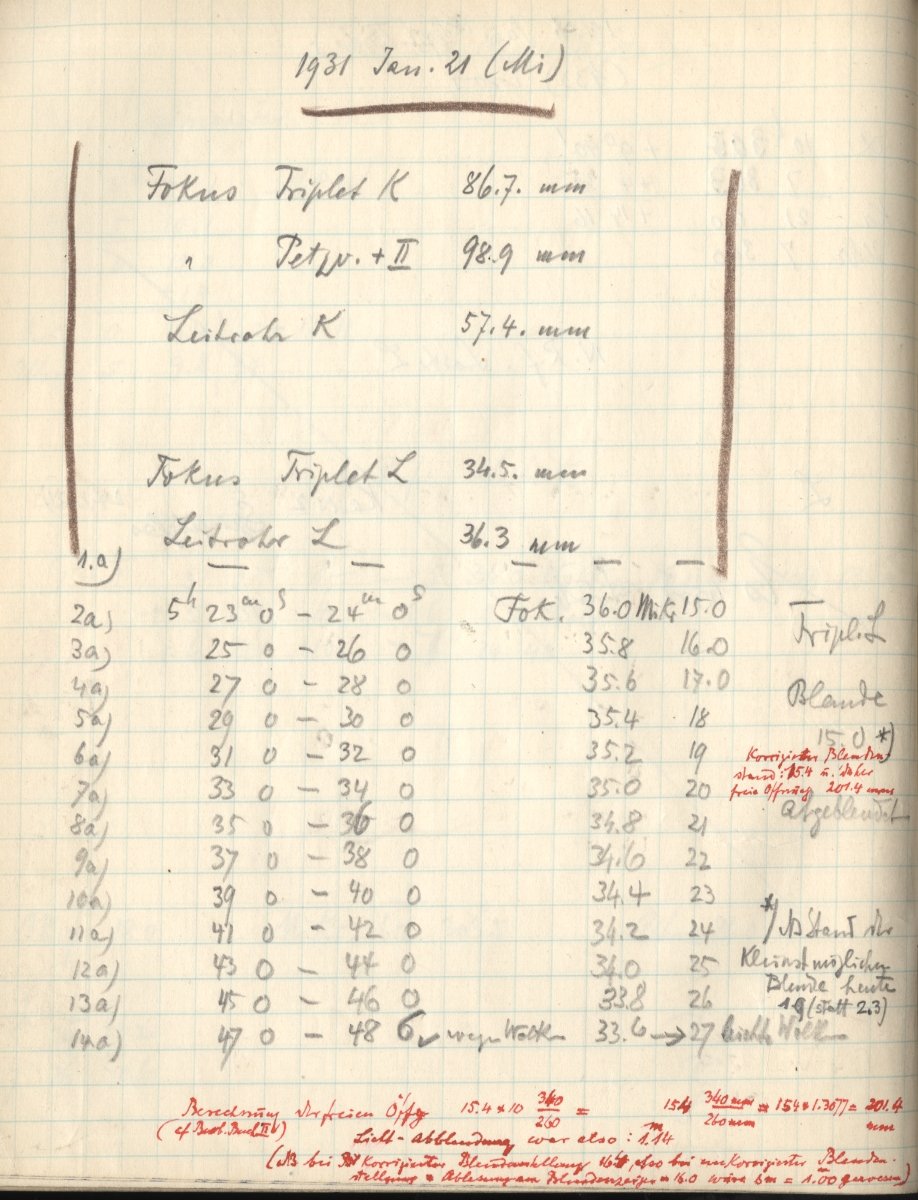 1931 Jan. 21 (Mi)
Fokus Triplet K 86.7. mm
" Petzv. + II 98.9 mm
Leitrohr K 57.4. mm
Fokus Triplet L 34.5. mm
Leitrohr L 36.3 mm
1.a) — — — — —
2a) 5h 23m 0s – 24m 0s Fok. 36.0 Mik 15.0 Tripl. L
3a) 25 0 – 26 0 35.8 16.0
4a) 27 0 – 28 0 35.6 17.0 Blende
5a) 29 0 – 30 0 35.4 18 15.0 *)
6a) 31 0 – 32 0 35.2 19
Korrigierter Blenden-
stand: 15.4 u. daher
freie Öffnung 201.4 mm
7a) 33 0 – 34 0 35.0 20
8a) 35 0 – 36 0 34.8 21 abgeblendet
9a) 37 0 – 38 0 34.6 22
10a) 39 0 – 40 0 34.4 23
11a) 41 0 – 42 0 34.2 24
12a) 43 0 – 44 0 34.0 25
13a) 45 0 – 46 0 33.8 26
14a) 47 0 – 48 6 wegen Wolken 33.6 → 27 leichte Wolken
*) NB Stand der
Kleinstmöglichen
Blende heute
1.9 (statt 2.3)
Berechnung der freien Öffg 15.4 × 10 340/260 = 154 340 mm/260 mm = 154 × 1.3077 = 201.4 mm
(cf Beob. Buch II)
Licht-Abblendung war also: 1.14m
(NB bei Korrigierter Blendenstellung also bei unkorrigierter Blenden-
stellung = Ablesung am Blendenzeiger = 16.0 wäre = 1.00 gewesen)